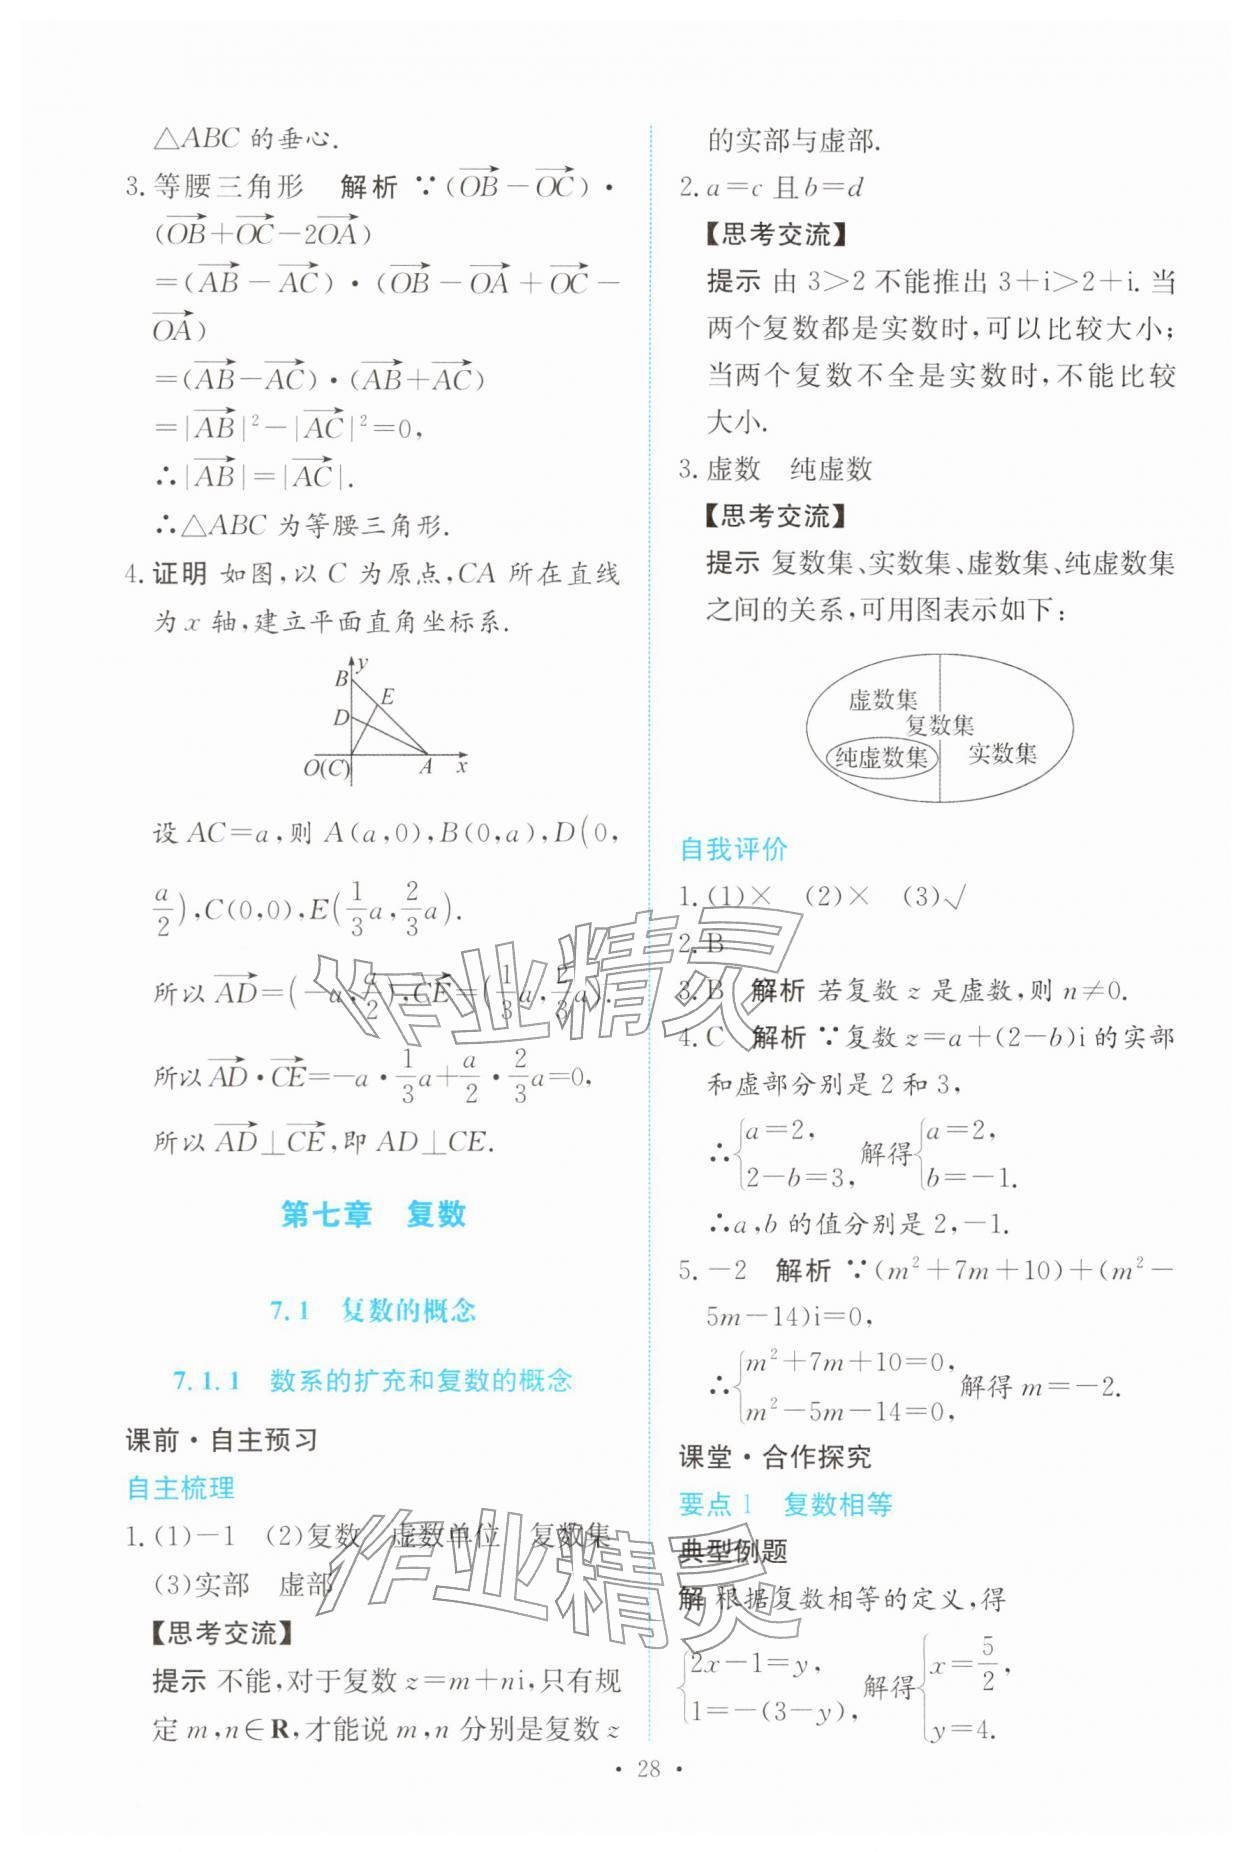 △ABC 的垂心.
3. 等腰三角形　解析 ∵(\overrightarrow{OB}-\overrightarrow{OC})·
(\overrightarrow{OB}+\overrightarrow{OC}-2\overrightarrow{OA})
=(\overrightarrow{AB}-\overrightarrow{AC})·(\overrightarrow{OB}-\overrightarrow{OA}+\overrightarrow{OC}-
\overrightarrow{OA})
=(\overrightarrow{AB}-\overrightarrow{AC})·(\overrightarrow{AB}+\overrightarrow{AC})
=|\overrightarrow{AB}|²-|\overrightarrow{AC}|²=0,
∴|\overrightarrow{AB}|=|\overrightarrow{AC}|.
∴△ABC 为等腰三角形.
4. 证明 如图,以 C 为原点,CA 所在直线
为 x 轴,建立平面直角坐标系.
y
B
E
D
O(C)　A　x
设 AC=a,则 A(a,0),B(0,a),D(0,
\frac{a}{2}),C(0,0),E(\frac{1}{3}a,\frac{2}{3}a).
所以 \overrightarrow{AD}=(-a,\frac{a}{2}),\overrightarrow{CE}=(\frac{1}{3}a,\frac{2}{3}a).
所以 \overrightarrow{AD}·\overrightarrow{CE}=-a·\frac{1}{3}a+\frac{a}{2}·\frac{2}{3}a=0,
所以 \overrightarrow{AD}⊥\overrightarrow{CE},即 AD⊥CE.
第七章　复数
7.1　复数的概念
7.1.1　数系的扩充和复数的概念
课前·自主预习
自主梳理
1. (1)-1　(2)复数　虚数单位　复数集
(3)实部　虚部
【思考交流】
提示 不能,对于复数 z=m+ni,只有规
定 m,n∈R,才能说 m,n 分别是复数 z
的实部与虚部.
2. a=c 且 b=d
【思考交流】
提示 由 3>2 不能推出 3+i>2+i. 当
两个复数都是实数时,可以比较大小;
当两个复数不全是实数时,不能比较
大小.
3. 虚数　纯虚数
【思考交流】
提示 复数集、实数集、虚数集、纯虚数集
之间的关系,可用图表示如下:
虚数集
复数集
纯虚数集　实数集
自我评价
1. (1)×　(2)×　(3)√
2. B
3. B　解析 若复数 z 是虚数,则 n≠0.
4. C　解析 ∵复数 z=a+(2-b)i 的实部
和虚部分别是 2 和 3,
∴{a=2, 2-b=3, 解得{a=2, b=-1.
∴a,b 的值分别是 2,-1.
5. -2　解析 ∵(m²+7m+10)+(m²-
5m-14)i=0,
∴{m²+7m+10=0, m²-5m-14=0, 解得 m=-2.
课堂·合作探究
要点 1　复数相等
典型例题
解 根据复数相等的定义,得
{2x-1=y, 1=-(3-y), 解得{x=\frac{5}{2}, y=4.
· 28 ·
作业精灵
作业精灵